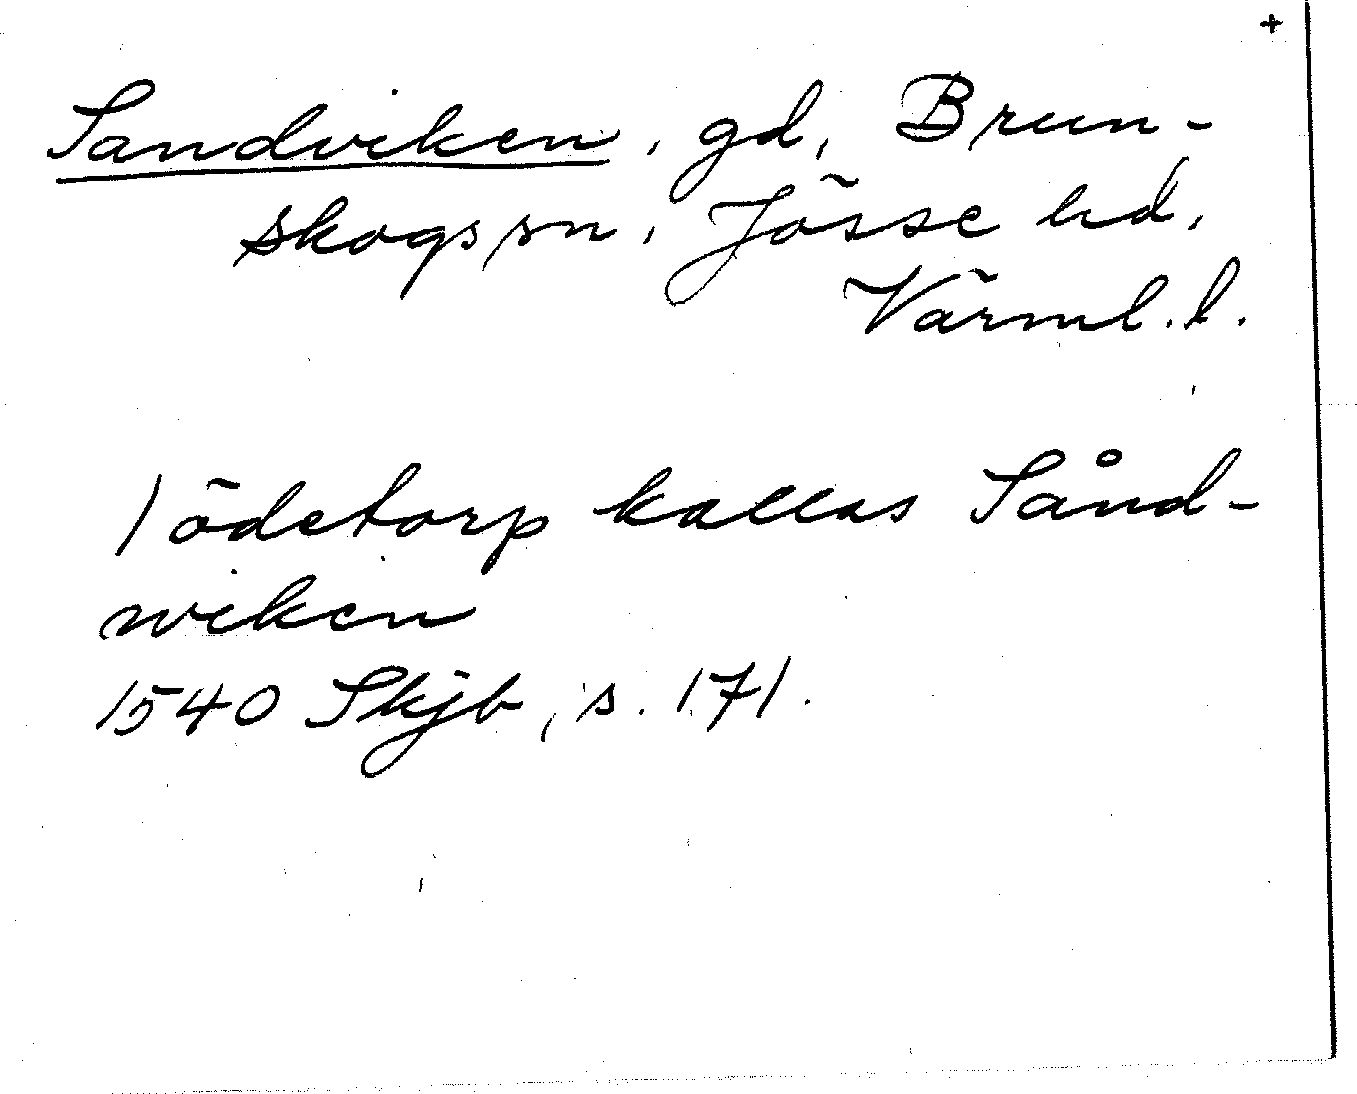 +
Sandviken, gd, Brun-
skogs sn, Jösse hd,
Värml. l.
1 ödetorp kallas Sånd-
wiken
1540 Skjb, s. 171.